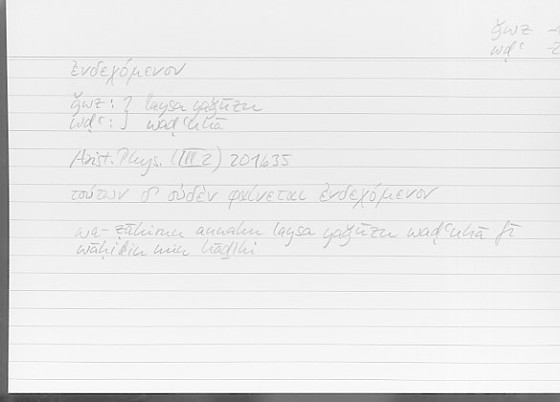 ǧwz
wḍʿ
ἐνδεχόμενον
ǧwz : } laysa yaǧūzu
wḍʿ : } waḍʿuhā
Arist. Phys. (III 2) 201b35
τούτων δ' οὐδὲν φαίνεται ἐνδεχόμενον
wa-ẓāhirun annahu laysa yaǧūzu waḍʿuhā fī
wāḥidin min hāḏihi